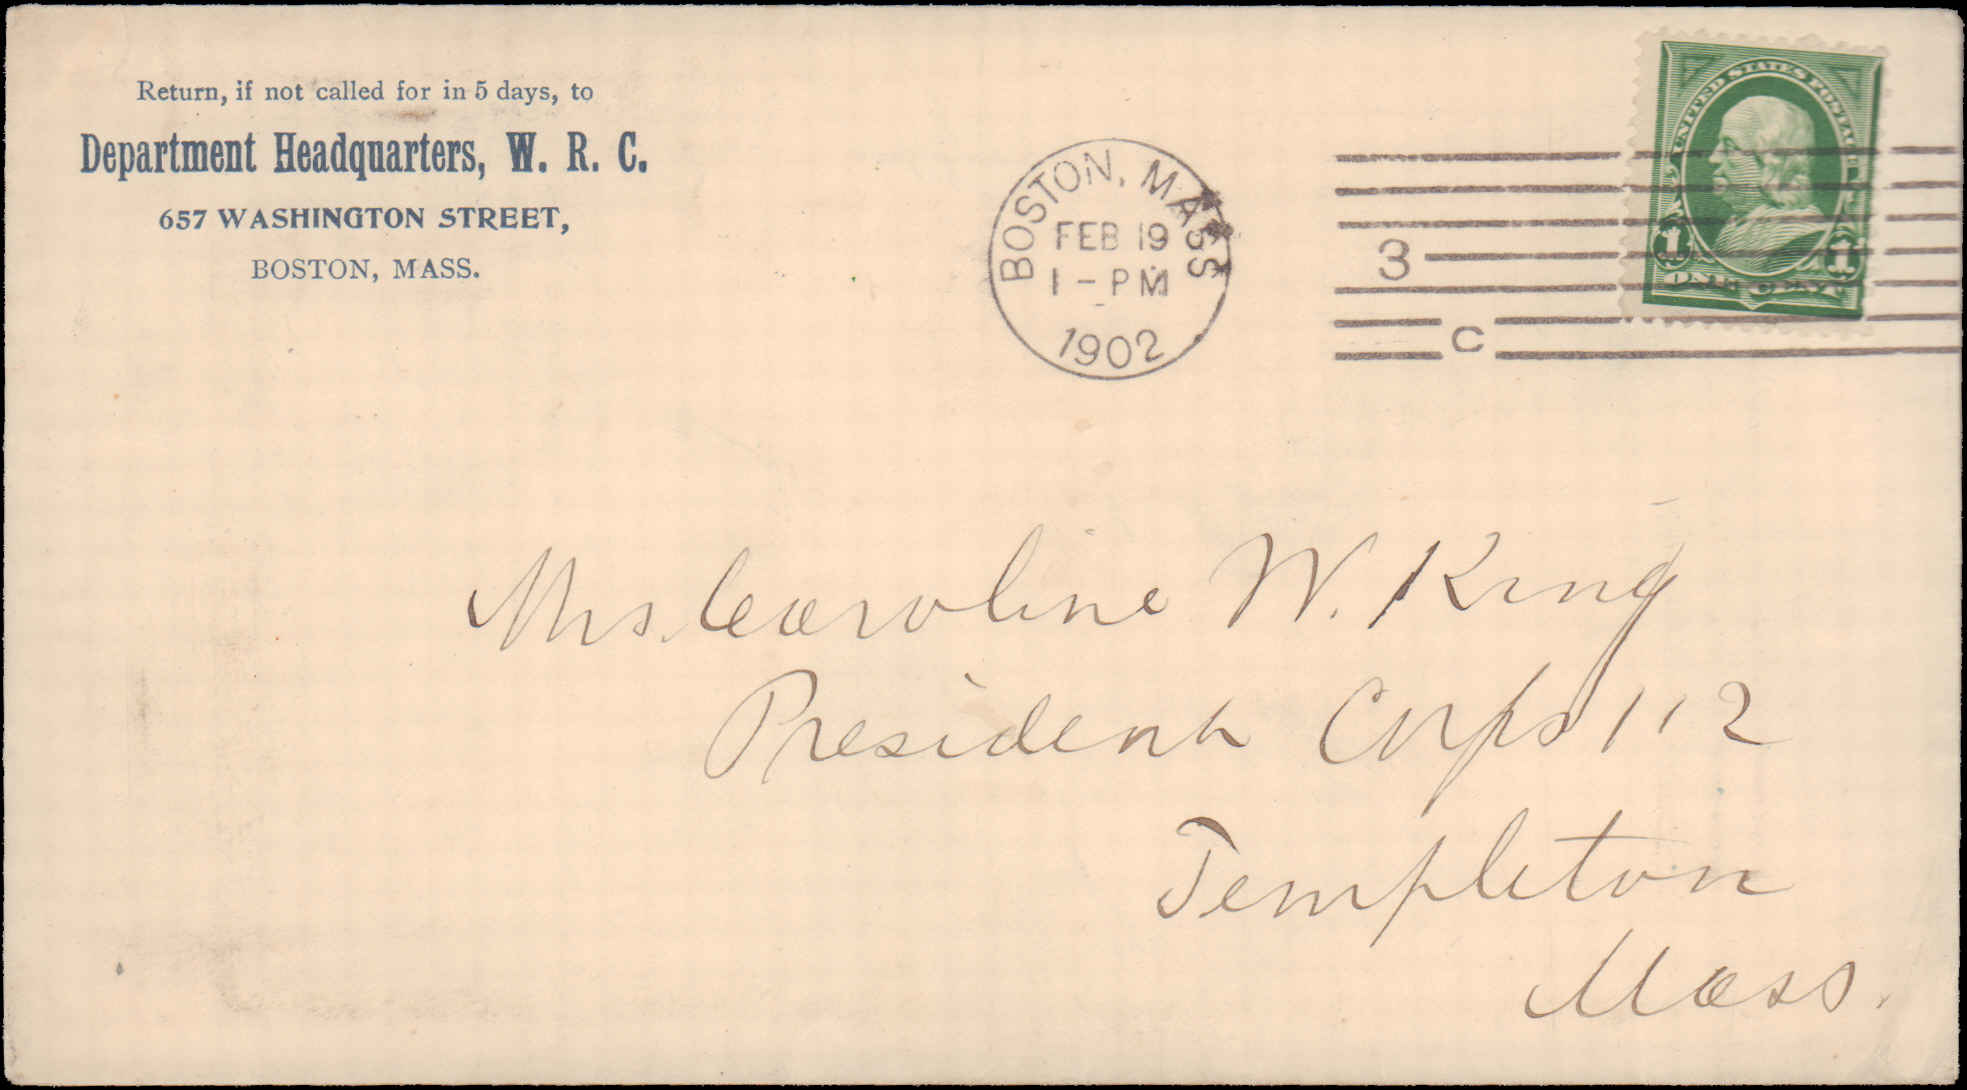 Return, if not called for in 5 days, to
Department Headquarters, W. R. C.
657 WASHINGTON STREET,
BOSTON, MASS.
BOSTON, MASS
FEB 19
1 - PM
1902
3
C
UNITED STATES POSTAGE
1 1
ONE CENT
Mrs. Caroline W. King
President Corps 112
Templeton
Mass.